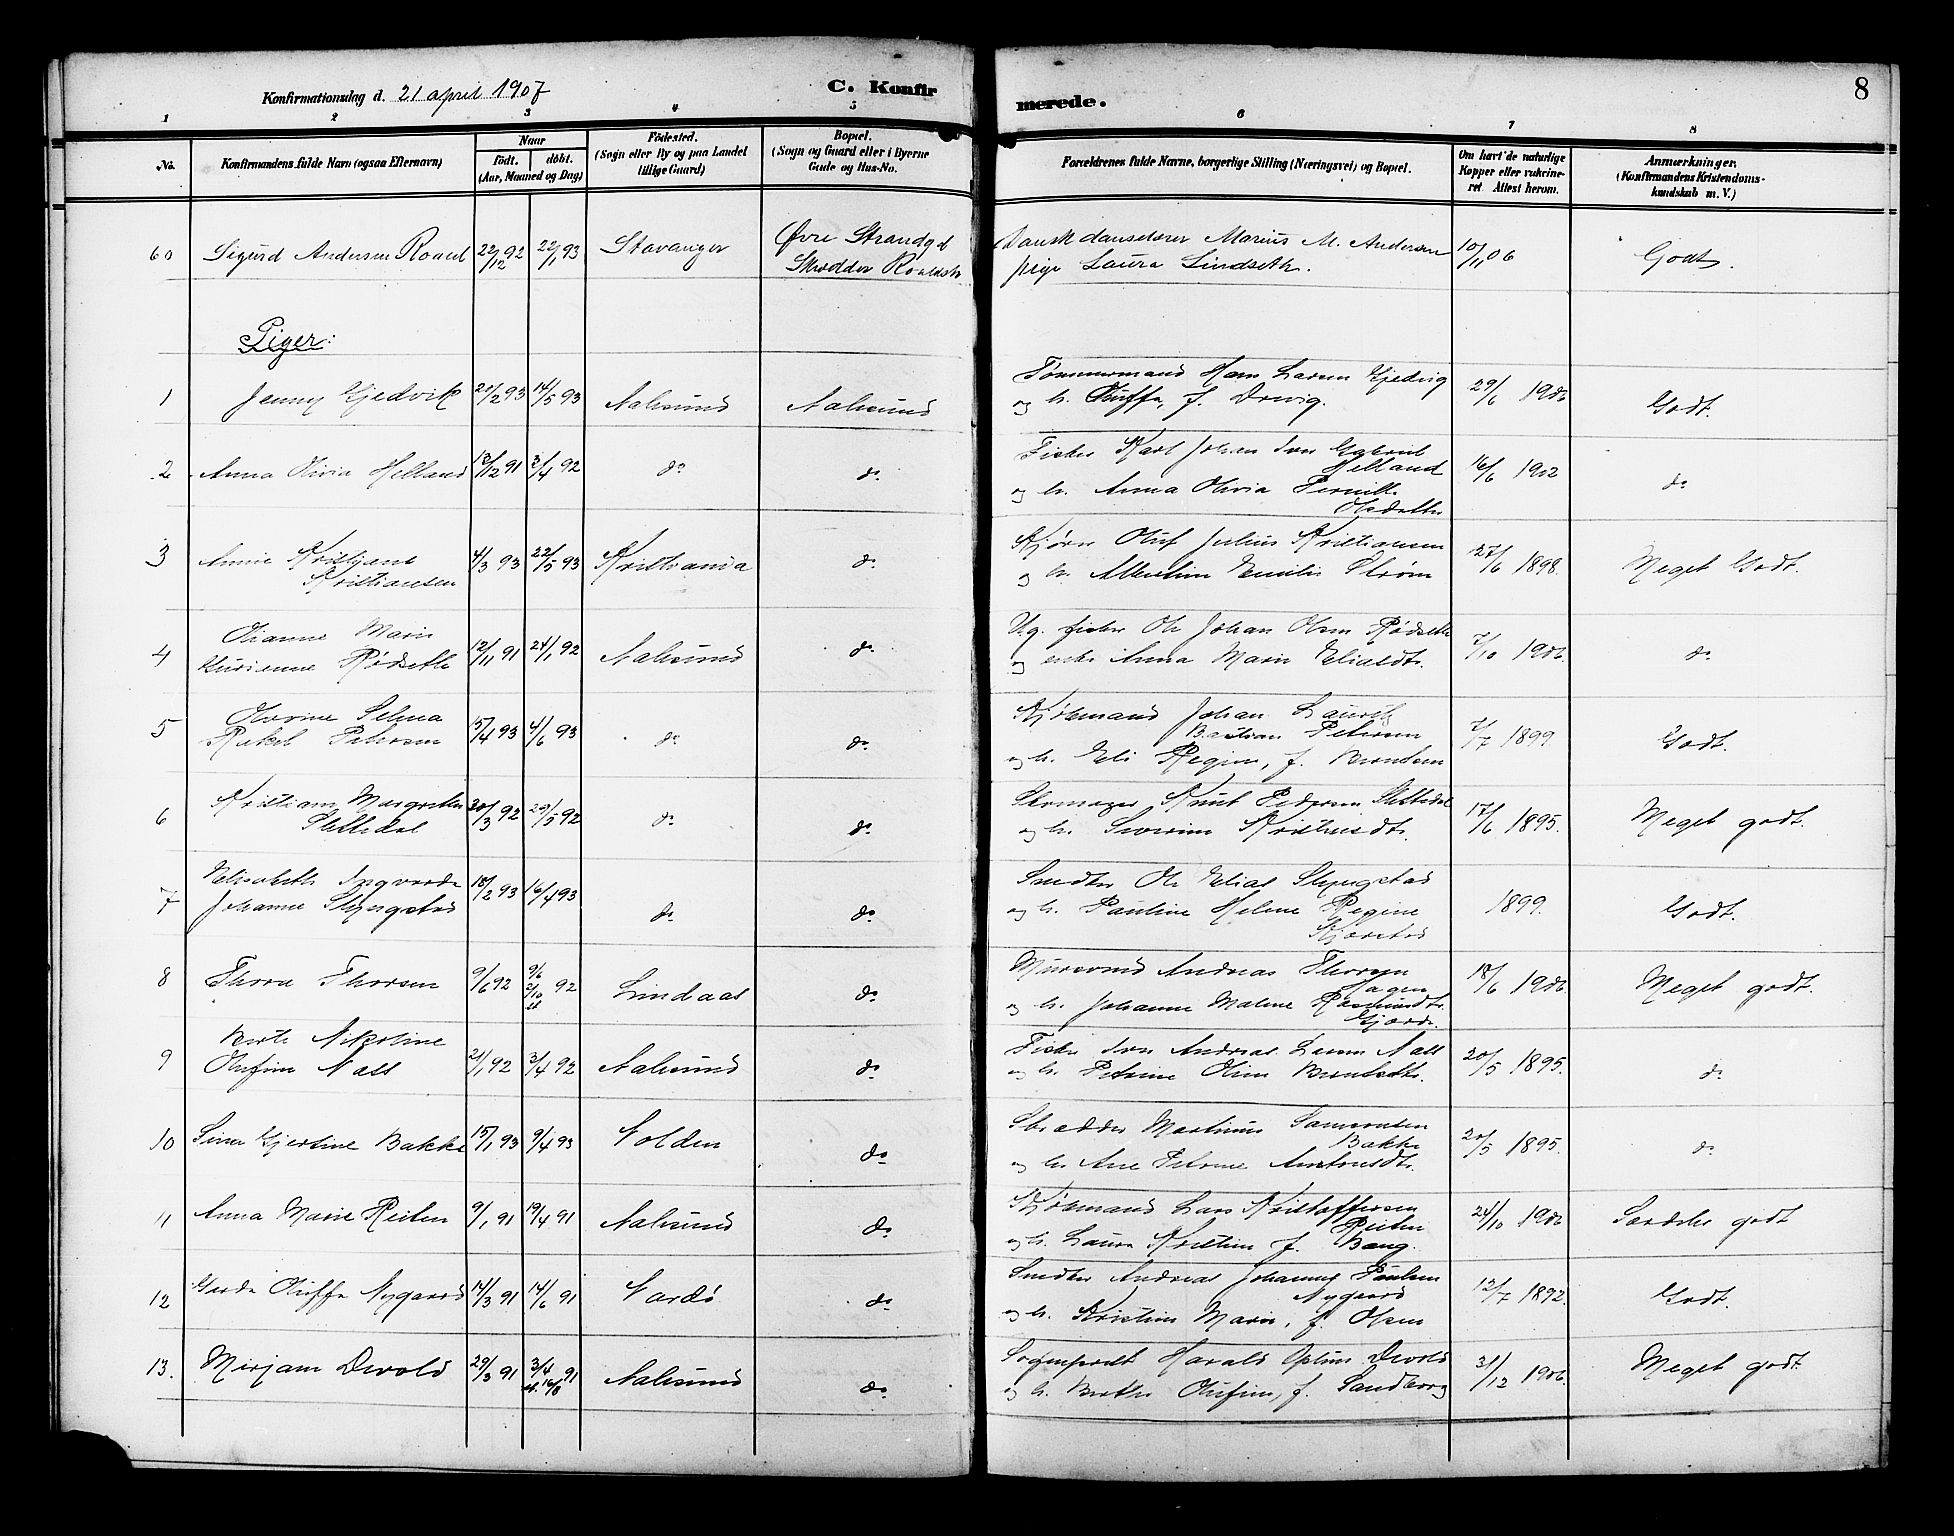 Konfirmationsdag d. 21 april 1907
C. Konfirmerede.
8
1 2 3 4 5 6 7 8
No.
Konfirmandens fulde Navn (ogsaa Efternavn)
Naar
født. døbt.
(Aar, Maaned og Dag)
Fødested.
(Sogn eller By og paa Landet
tillige Gaard)
Bopæl.
(Sogn og Gaard eller i Byerne
Gade og Hus-No.
Forældrenes fulde Navne, borgerlige Stilling (Næringsvei) og Bopæl.
Om havt de naturlige
Kopper eller vakcineret
Attest herom.
Anmærkninger.
(Konfirmandens Kristendomskundskab
m. V.)
60 Sigurd Andersen Roald 22/12 92 22/1 93 Stavanger Øvre Strandgt
Skrædder Roaldsth.
Dansk danselærer Marius M. Andersen
pige Laura Lindseth. 10/11 06 Godt.
Piger:
1 Jenny Gjedvik 20/2 93 14/5 93 Aalesund Aalesund
Tømmermand Hans Larsen Gjedvig
og h. Oluffa, f. Drvig. 29/6 1906 Godt.
2 Anna Olivia Helland 13/12 91 3/4 92 do do
Fisker Karl Johan Iver Gabriel
Helland
og h. Anna Olivia Pernille
Olsdatter 16/6 1902 do
3 Annie Kristjane
Kristiansen 4/3 93 22/5 93 Kristiania do
Oluf Julius Kristiansen
og h. Albertine Emilie Strøm 27/6 1898. Meget Godt.
4 Olianne Marie
Rødseth 12/11 91 24/1 92 Aalesund do
fisker Ole Johan Olsen Rødseth
og enke Anna Marie Eliasdtr. 7/10 1906. do
5 Olovine Selma
Rakel Petersen 15/4 93 4/6 93 do do
Kjøbmand Johan Lauritz
Bastian Petersen
og h. Eli Regine, f. Berentsen 7/7 1899 Godt.
6 Kristiane Margrethe
Slettedal 20/3 92 29/5 92 do do
Skomager Knut Pedersen Slettedal
og h. Severine Knutsdtr. 17/6 1895. Meget godt.
7 Elisabeth Ingvarda
Johanne Slyngstad 18/2 93 16/4 93 do do
Snedker Ole Elias Slyngstad
og h. Pauline Helene Regine
Kjærstad 1899. Godt.
8 Thora Thorsen 9/6 92 9/6 2/10 92 Lindaas do
Murersvend Andreas Thorsen
Hagen
og h. Johanne Malene Rasmusdtr.
Gjærde. 18/6 1906. Meget godt.
9 Berte Nikoline
Olufine Nass 21/1 92 3/4 92 Aalesund do
Fisker Iver Andreas Larsen Nass
og h. Petrine Oline Berntsdtr. 20/5 1895. do
10 Sina Gjertine Bakke 15/1 93 9/4 93 Volden do
Skrædder Martinus Samuelsen
Bakke
og h. Ane Petrine Antonsdtr. 20/5 1895. do
11 Anna Marie Reiten 9/1 91 19/4 91 Aalesund do
Kjøbmand Lars Kristoffersen
Reiten
og h. Laura Kristine f. Bang. 24/10 1906 Særdeles godt
12 Gerda Oluffa Nygaard 14/3 91 14/6 91 Vardø do
Snedker Andreas Johannes Paulsen
Nygaard
og h. Kristine Marie, f. Olsen 12/7 1892. Godt.
13. Mirjam Devold 29/3 91 3/4 st. 16/8 91 Aalesund do
Sogneprest Harald Optus Devold
og h. Berthe Olufine, f. Sandborg 31/12 1906. Meget godt